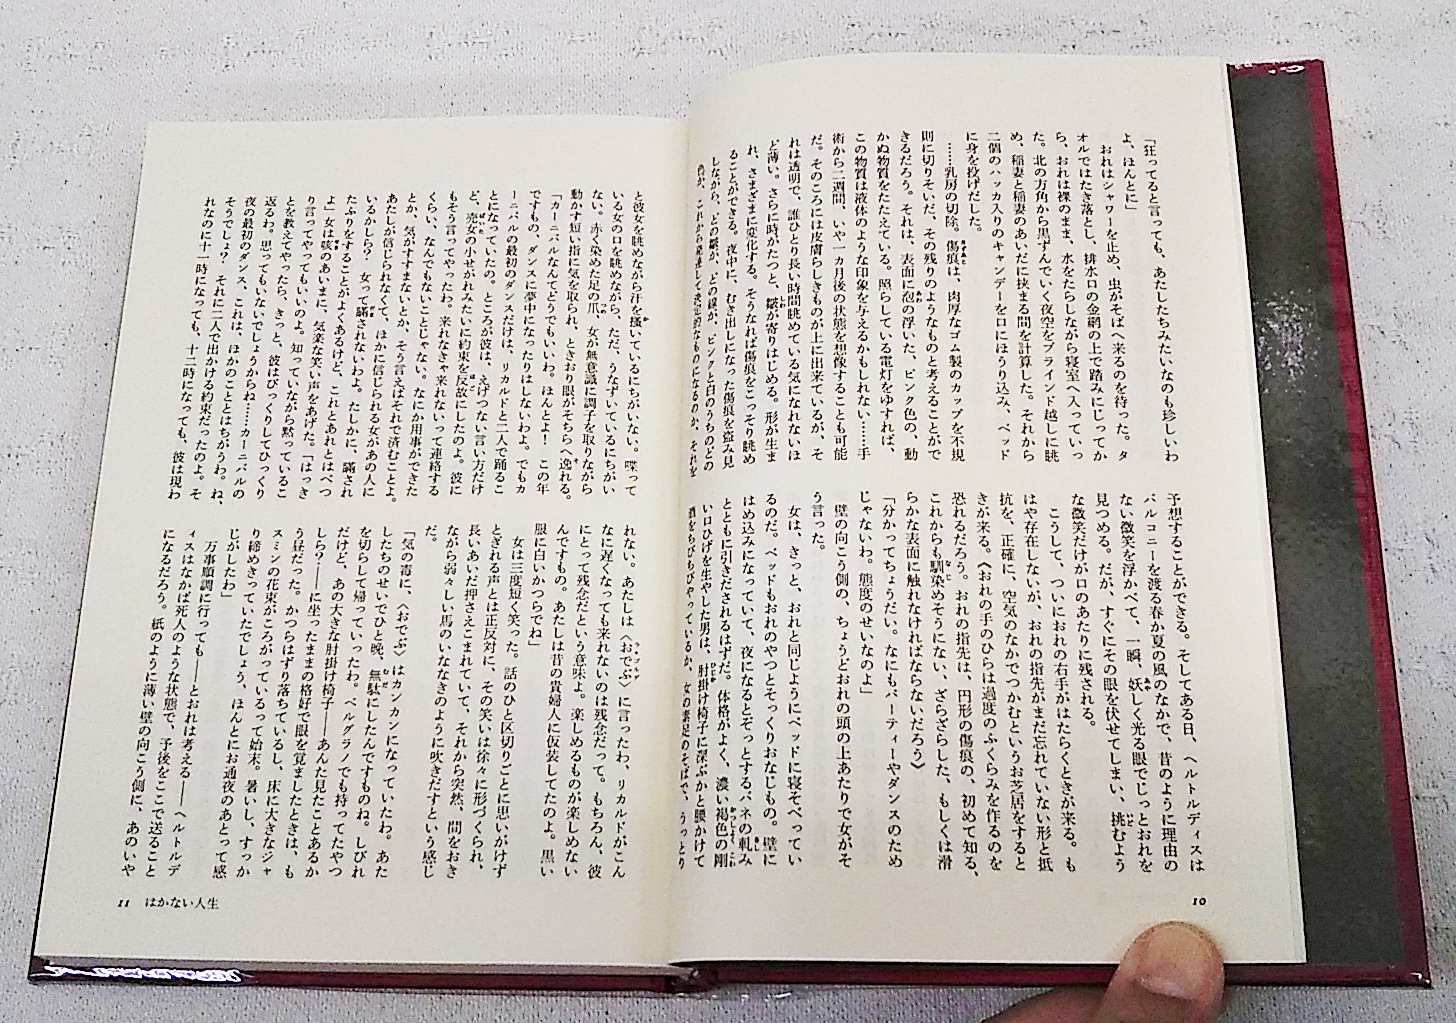 「狂ってると言っても、あたしたちみたいなのも珍しいわ
よ、ほんとに」
おれはシャワーを止め、虫がそばへ来るのを待った。タ
オルではたき落とし、排水口の金網の上で踏みにじってか
ら、おれは裸のまま、水をたらしながら寝室へ入っていっ
た。北の方角から黒ずんでいく夜空をブラインド越しに眺
め、稲妻と稲妻のあいだに挟まる間を計算した。それから
二個のハッカ入りのキャンデーを口にほうり込み、ベッド
に身を投げだした。
……乳房の切除。傷痕は、肉厚なゴム製のカップを不規
則に切りそいだ、その残りのようなものと考えることがで
きるだろう。それは、表面に泡の浮いた、ピンク色の、動
かぬ物質をたたえている。照らしている電灯をゆすれば、
この物質は液体のような印象を与えるかもしれない……手
術から二週間、いや一カ月後の状態を想像することも可能
だ。そのころには皮膚らしきものが上に出来ているが、そ
れは透明で、誰ひとり長い時間眺めている気になれないほ
ど薄い。さらに時がたつと、皺が寄りはじめる。形が生ま
れ、さまざまに変化する。そうなれば傷痕をこっそり眺め
ることができる。夜中に、むき出しになった傷痕を盗み見
しながら、どの皺が、どの線が、ピンクと白のうちのどの
色が、これから発達して決定的なものになるのか、それを
予想することができる。そしてある日、ヘルトルディスは
バルコニーを渡る春か夏の風のなかで、昔のように理由の
ない微笑を浮かべて、一瞬、妖しく光る眼でじっとおれを
見つめる。だが、すぐにその眼を伏せてしまい、挑むよう
な微笑だけが口のあたりに残される。
こうして、ついにおれの右手がはたらくときが来る。も
はや存在しないが、おれの指先がまだ忘れていない形と抵
抗を、正確に、空気のなかでつかむというお芝居をすると
きが来る。《おれの手のひらは過度のふくらみを作るのを
恐れるだろう。おれの指先は、円形の傷痕の、初めて知る、
これからも馴染めそうにない、ざらざらした、もしくは滑
らかな表面に触れなければならないだろう》
「分かってちょうだい。なにもパーティーやダンスのため
じゃないわ。態度のせいなのよ」
壁の向こう側の、ちょうどおれの頭の上あたりで女がそ
う言った。
女は、きっと、おれと同じようにベッドに寝そべってい
るのだ。ベッドもおれのやつとそっくりおなじもの。壁に
はめ込みになっていて、夜になるとぞっとするバネの軋み
とともに引きだされるはずだ。体格がよく、濃い褐色の剛
い口ひげを生やした男は、肘掛け椅子に深ぶかと腰かけて
酒をちびちびやっているか、女の素足のそばで、うっとり
10
と彼女を眺めながら汗を掻いているにちがいない。喋って
いる女の口を眺めながら、ただ、うなずいているにちがい
ない。赤く染めた足の爪、女が無意識に調子を取りながら
動かす短い指に気を取られ、ときおり眼がそちらへ逸れる。
「カーニバルなんてどうでもいいわ。ほんとよ！　この年
ですもの、ダンスに夢中になったりはしないわよ。でもカ
ーニバルの最初のダンスだけは、リカルドと二人で踊るこ
とになっていたの。ところが彼は、えげつない言い方だけ
ど、売女の小せがれみたいに約束を反故にしたのよ。彼に
もそう言ってやったわ。来れなきゃ来れないって連絡する
くらい、なんでもないことじゃない。なにか用事ができた
とか、気がすすまないとか、そう言えばそれで済むことよ。
あたしが信じられなくて、ほかに信じられる女があの人に
いるかしら？　女って騙されないわよ。たしかに、騙され
たふりをすることがよくあるけど、これとあれとはべつ
よ」女は咳のあいまに、気楽な笑い声をあげた。「はっき
り言ってやってもいいのよ。知っていながら黙っているこ
とを教えてやったら、きっと、彼はびっくりしてひっくり
返るわ。思ってもいないでしょうからね……カーニバルの
夜の最初のダンス、これは、ほかのこととはちがうわ。ね、
そうでしょ？　それに二人で出かける約束だったのよ。そ
れなのに十一時になっても、十二時になっても、彼は現わ
れない。あたしは〈おでぶ〉に言ったわ、リカルドがこん
なに遅くなっても来れないのは残念だって。もちろん、彼
にとって残念だという意味よ。楽しめるものが楽しめない
んですもの。あたしは昔の貴婦人に仮装してたのよ。黒い
服に白いかつらでね」
女は三度短く笑った。話のひと区切りごとに思いがけず
とぎれる声とは正反対に、その笑いは徐々に形づくられ、
長いあいだ押さえこまれていて、それから突然、間をおき
ながら弱々しい馬のいななきのように吹きだすという感じ
だ。
「気の毒に、〈おでぶ〉はカンカンになっていたわ。あた
したちのせいでひと晩、無駄にしたんですものね。しびれ
を切らして帰っていったわ。ベルグラノでも持ってたやつ
だけど、あの大きな肘掛け椅子――あんた見たことあるか
しら？――に坐ったままの格好で眼を覚ましたときは、も
う昼だった。かつらはずり落ちているし、床に大きなジャ
スミンの花束がころがっているって始末。暑いし、すっか
り締めきっていたでしょう、ほんとにお通夜のあとって感
じがしたわ」
万事順調に行っても――とおれは考える――ヘルトルデ
ィスはなかば死人のような状態で、予後をここで送ること
になるだろう。紙のように薄い壁の向こう側に、あのいや
11 はかない人生